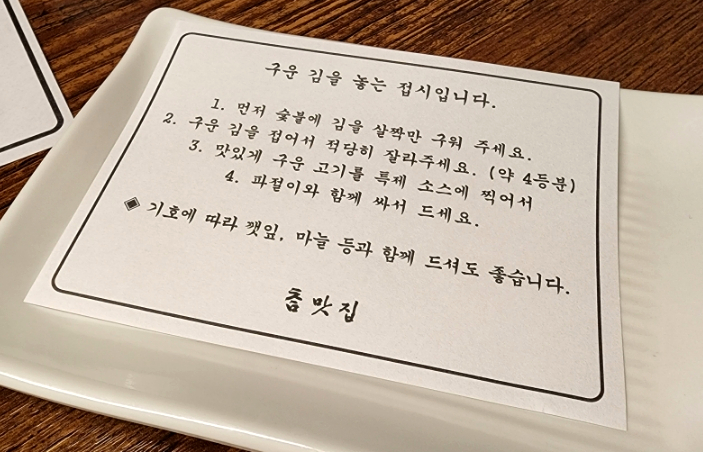 구운 김을 놓는 접시입니다.
1. 먼저 숯불에 김을 살짝만 구워 주세요.
2. 구운 김을 접어서 적당히 잘라주세요. (약 4등분)
3. 맛있게 구운 고기를 특제 소스에 찍어서
4. 파절이와 함께 싸서 드세요.
◈ 기호에 따라 깻잎, 마늘 등과 함께 드셔도 좋습니다.
춤맛집